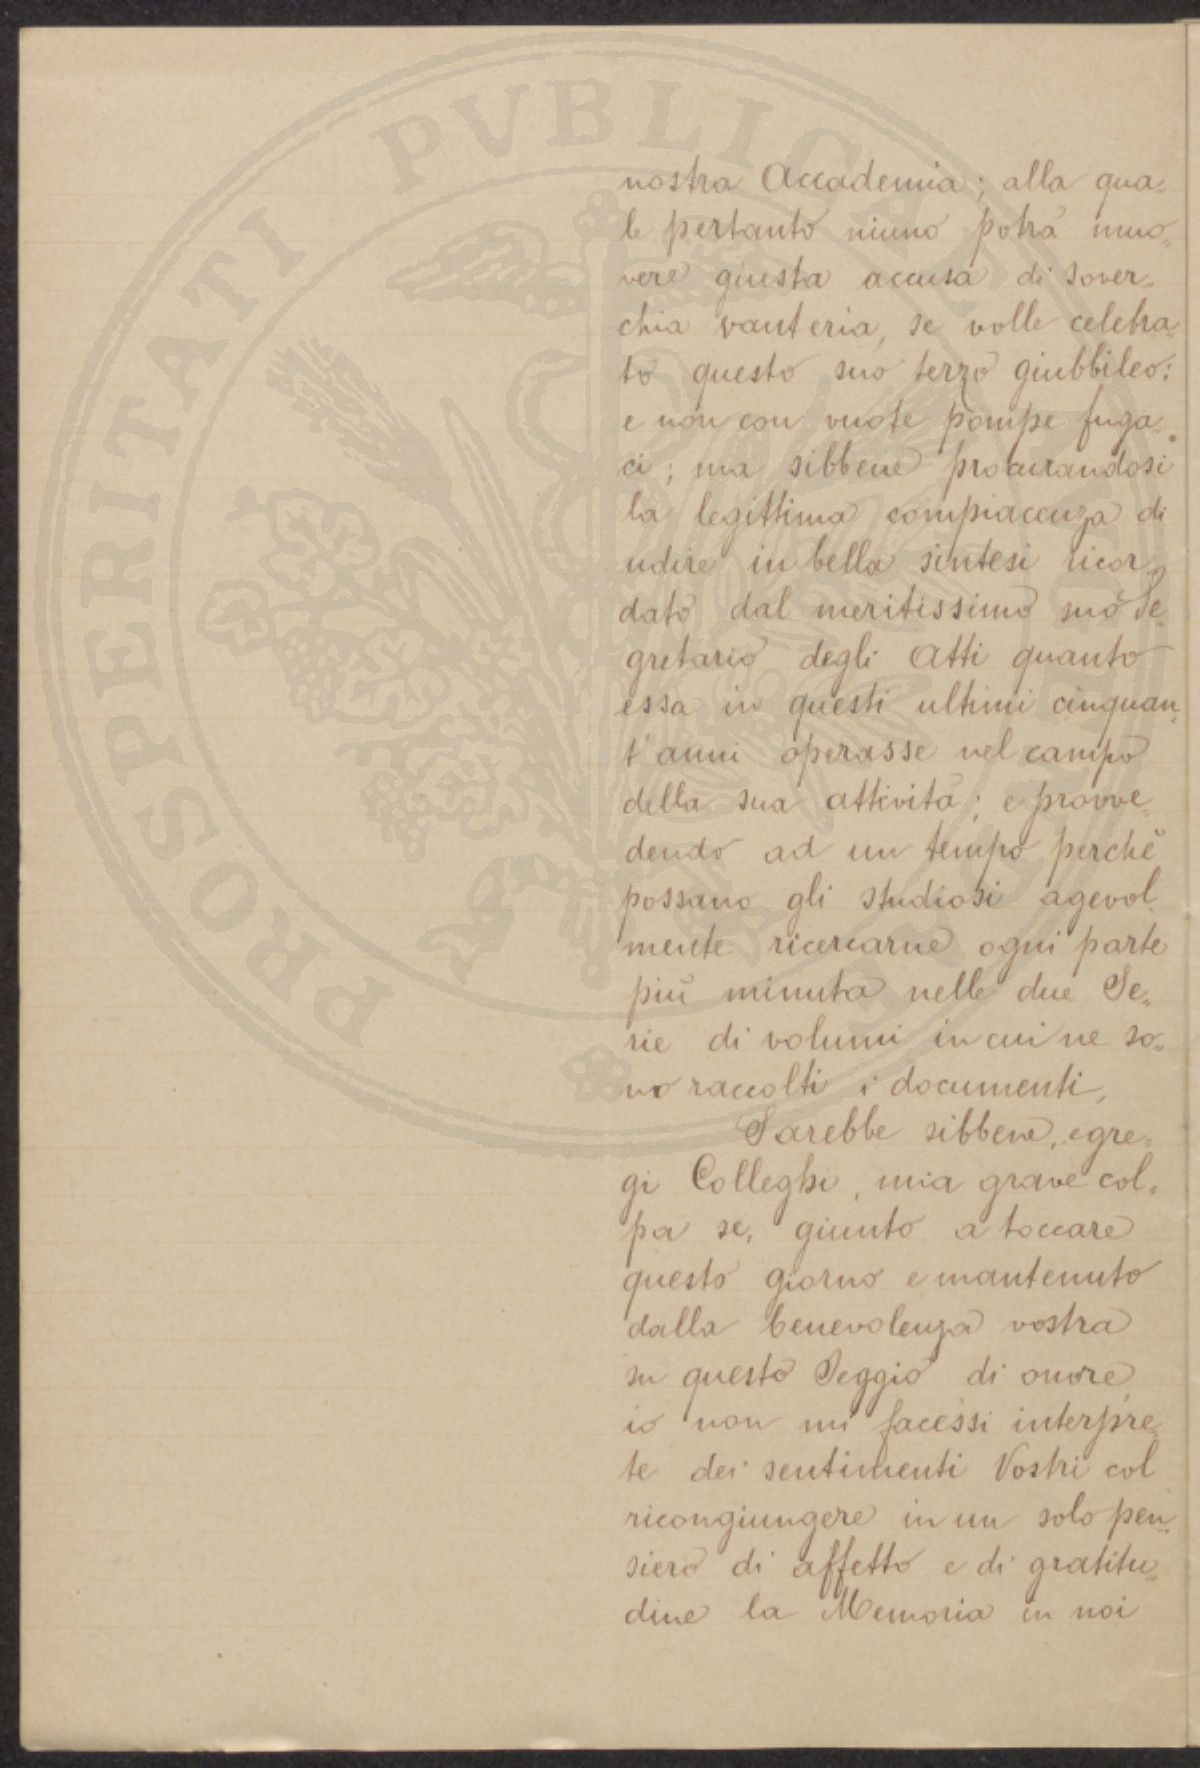 PROSPERITATI PVBLICAE
nostra Accademia; alla qua=
le pertanto niuno potrà muo=
vere giusta accusa di sover=
chia vanteria, se volle celebra=
to questo suo terzo giubbileo:
e non con vuote pompe fuga=
ci; ma sibbene procurandosi
la legittima compiacenza di
udire in bella sintesi ricor=
dato dal meritissimo suo Se=
gretario degli Atti quanto
essa in questi ultimi cinquan=
t'anni operasse nel campo
della sua attività; e provve=
dendo ad un tempo perchè
possano gli studiosi agevol=
mente ricercarne ogni parte
più minuta nelle due Se=
rie di volumi in cui ne so=
no raccolti i documenti.
Sarebbe sibbene, egre=
gi Colleghi, mia grave col=
pa se, giunto a toccare
questo giorno e mantenuto
dalla benevolenza vostra
su questo Seggio di onore,
io non mi facessi interpre=
te dei sentimenti Vostri col
ricongiungere in un solo pen=
siero di affetto e di gratitu=
dine la Memoria in noi